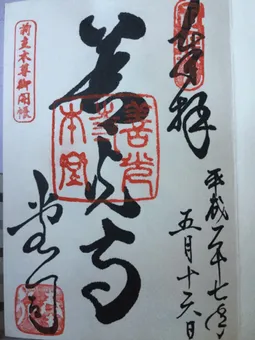 奉拝
平成二十七年
五月十六日
善光寺
善光寺本堂
前立本尊御開帳